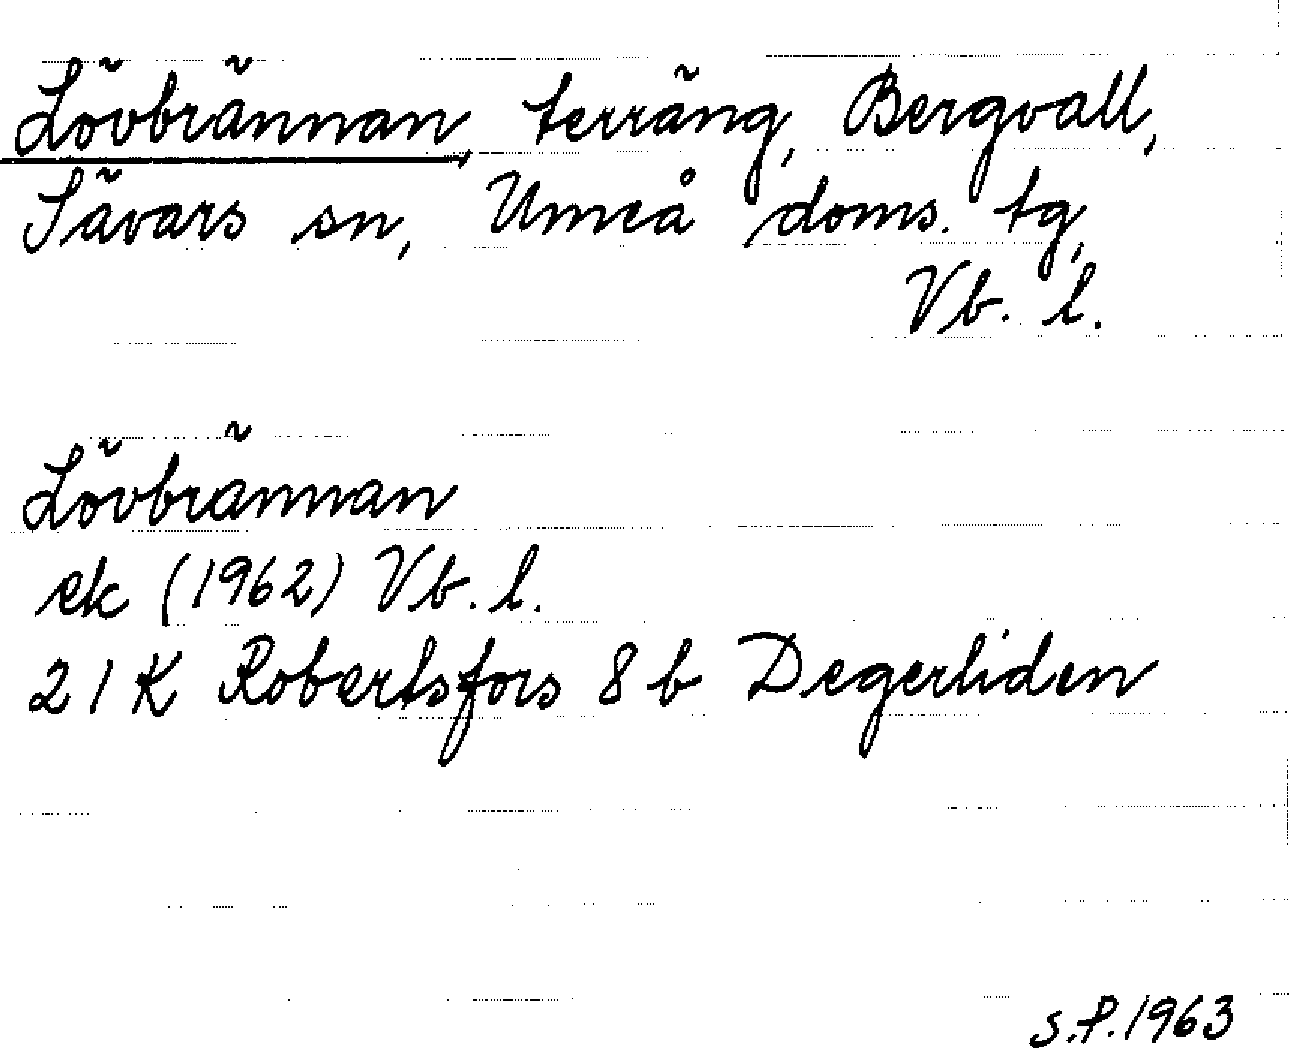 Lövbrännan, terräng, Bergvall,
Sävars sn, Umeå doms. tg,
Vb. l.
Lövbrännan
ek (1962) Vb. l.
21 K Robertsfors 8 b Degerliden
S.P. 1963